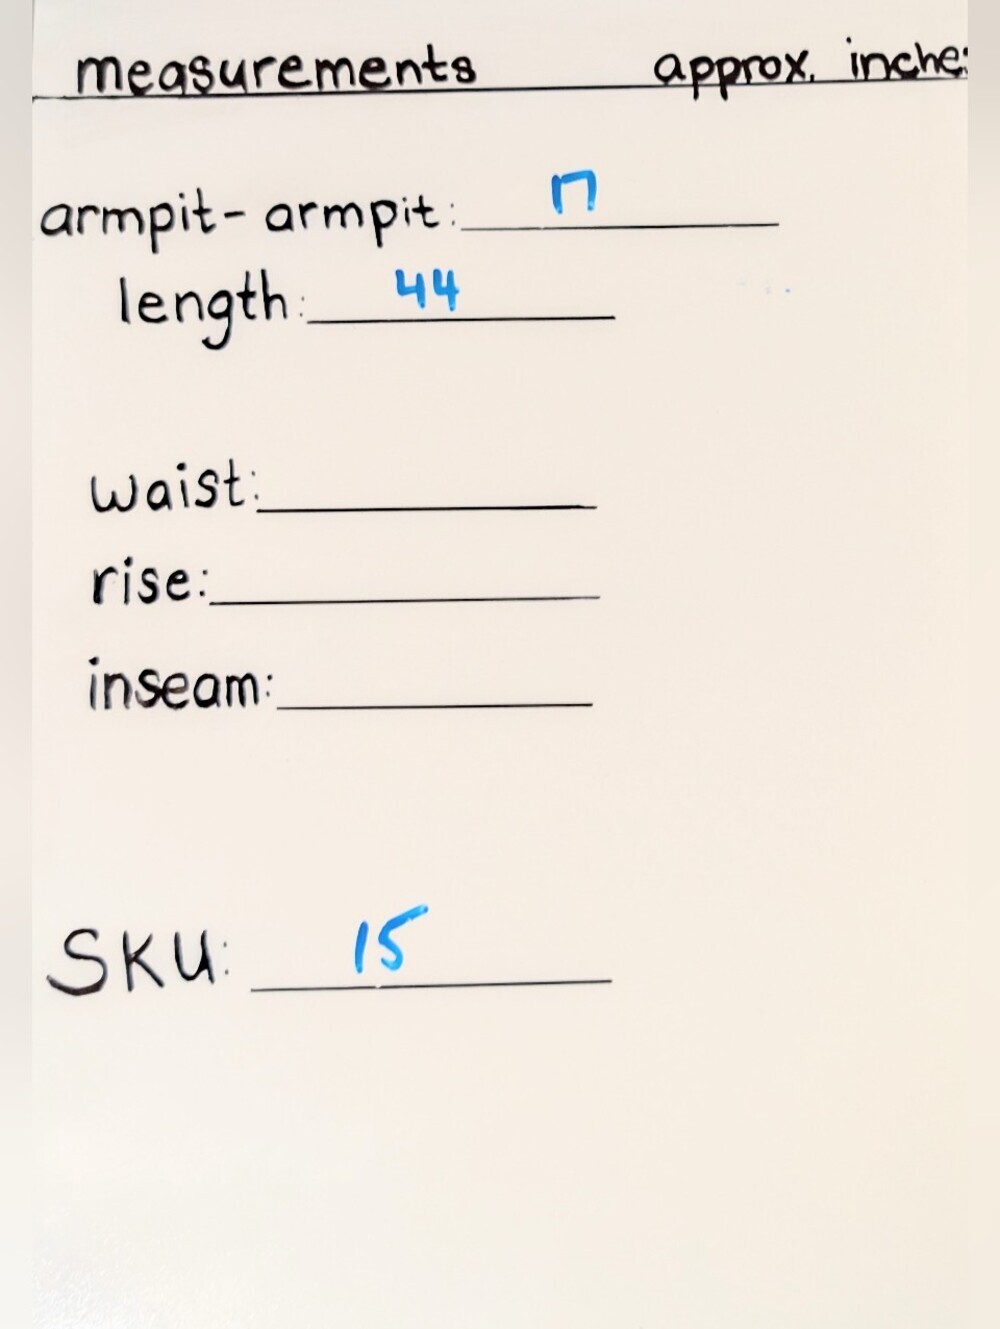 measurements approx. inches
armpit-armpit: 17
length: 44
waist:
rise:
inseam:
SKU: 15